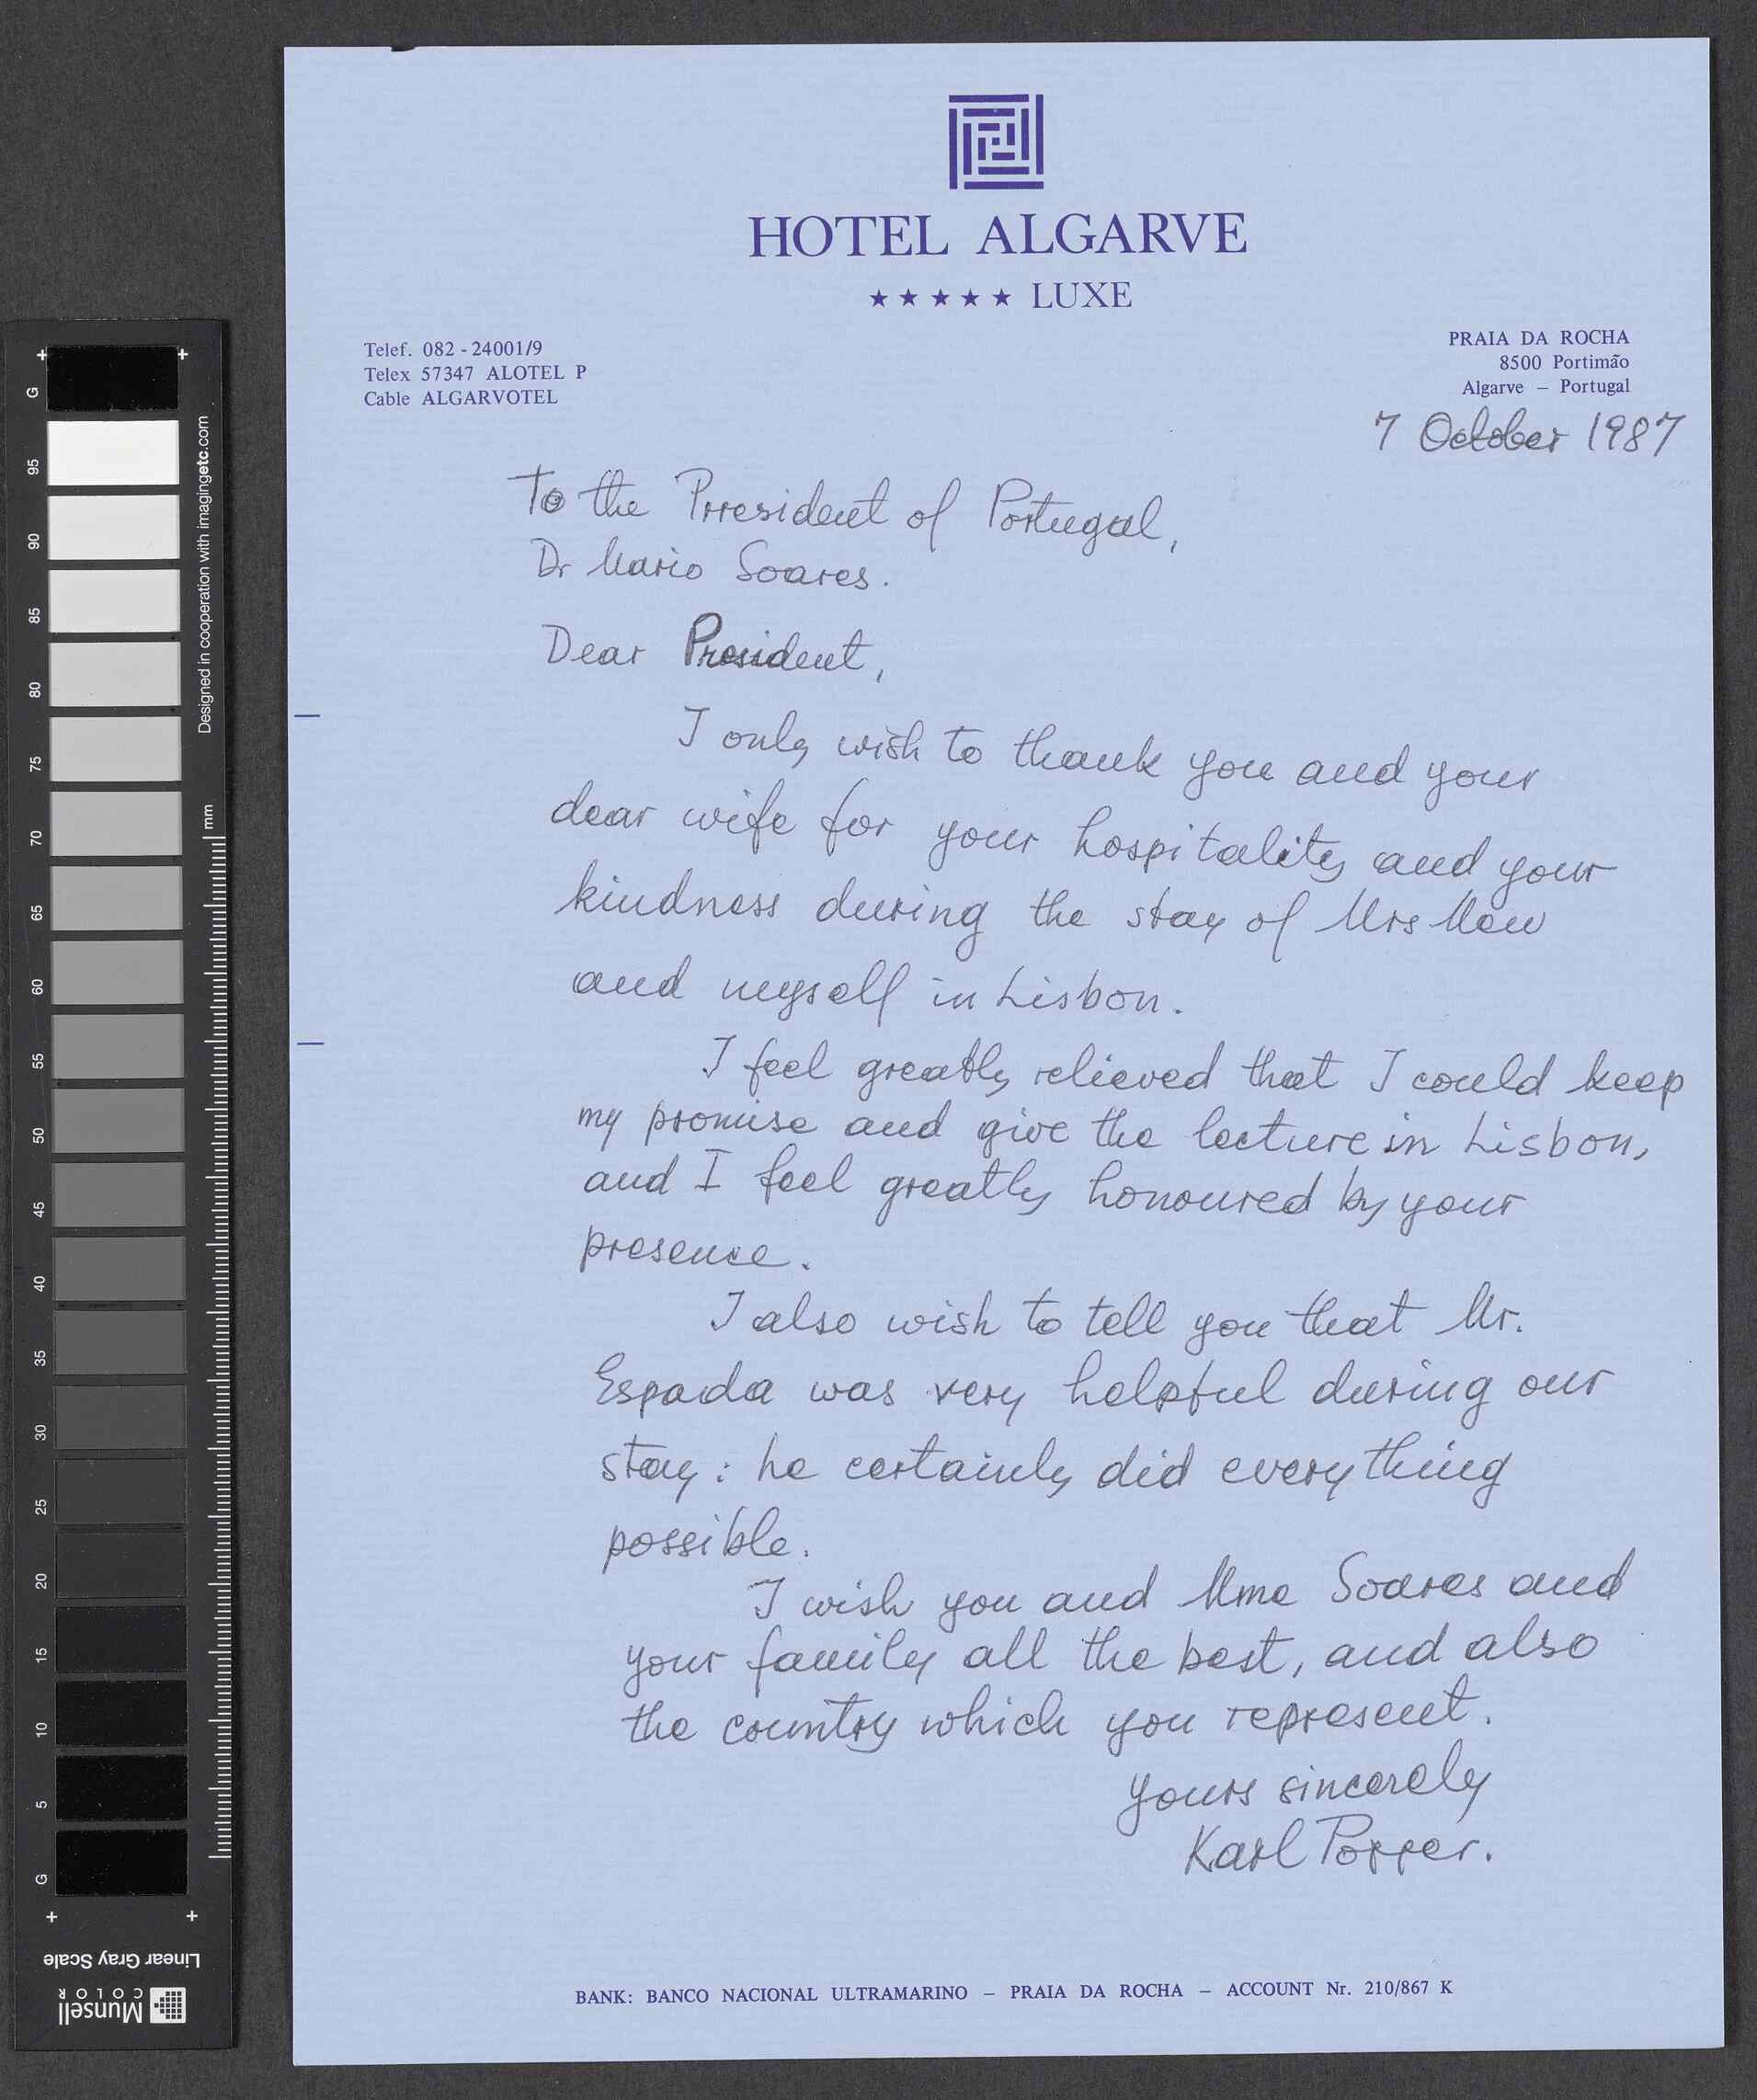 HOTEL ALGARVE
★★★★★ LUXE
Telef. 082 - 24001/9
Telex 57347 ALOTEL P
Cable ALGARVOTEL
PRAIA DA ROCHA
8500 Portimão
Algarve – Portugal
7 October 1987
To the Prresident of Portugal,
Dr Mario Soares.
Dear President,
I only wish to thank you and your
dear wife for your hospitality and your
kindness during the stay of Mrs Mew
and myself in Lisbon.
I feel greatly relieved that I could keep
my promise and give the lecture in Lisbon,
and I feel greatly honoured by your
presence.
I also wish to tell you that Mr.
Espada was very helpful during our
stay: he certainly did everything
possible.
I wish you and Mme Soares and
your family all the best, and also
the country which you represent.
Yours sincerely
Karl Popper.
BANK: BANCO NACIONAL ULTRAMARINO – PRAIA DA ROCHA – ACCOUNT Nr. 210/867 K
G
95
90
85
80
75
70
65
60
55
50
45
40
35
30
25
20
15
10
5
G
Designed in cooperation with imagingetc.com
mm
Linear Gray Scale
Munsell
COLOR